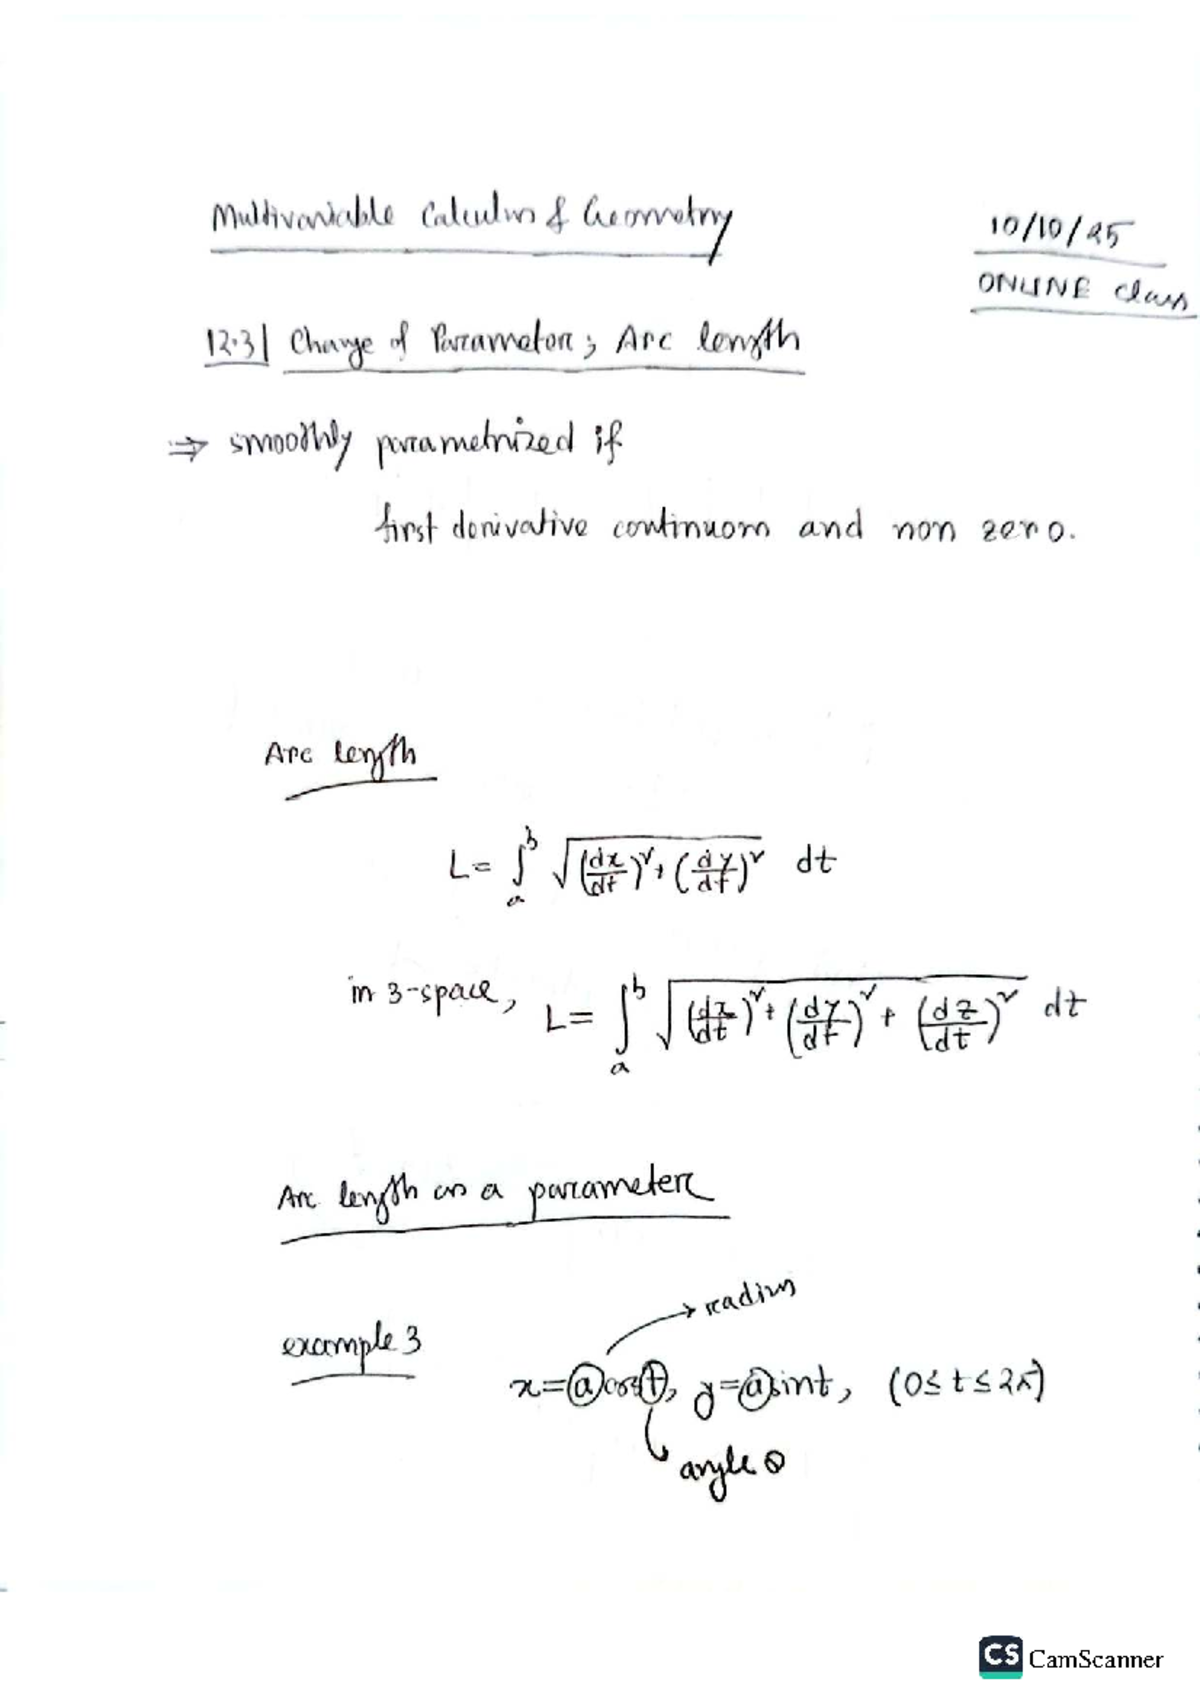 Multivariable Calculus & Geometry
10/10/25
ONLINE class
12.3| Change of Parameter; Arc length
⇒ smoothly parametrized if
first derivative continuous and non zero.
Arc length
L = ∫_a^b √((dx/dt)² + (dy/dt)²) dt
in 3-space, L = ∫_a^b √((dx/dt)² + (dy/dt)² + (dz/dt)²) dt
Arc length as a parameter
→ radius
example 3
x = a cos t, y = a sin t, (0 ≤ t ≤ 2π)
angle θ
CS CamScanner